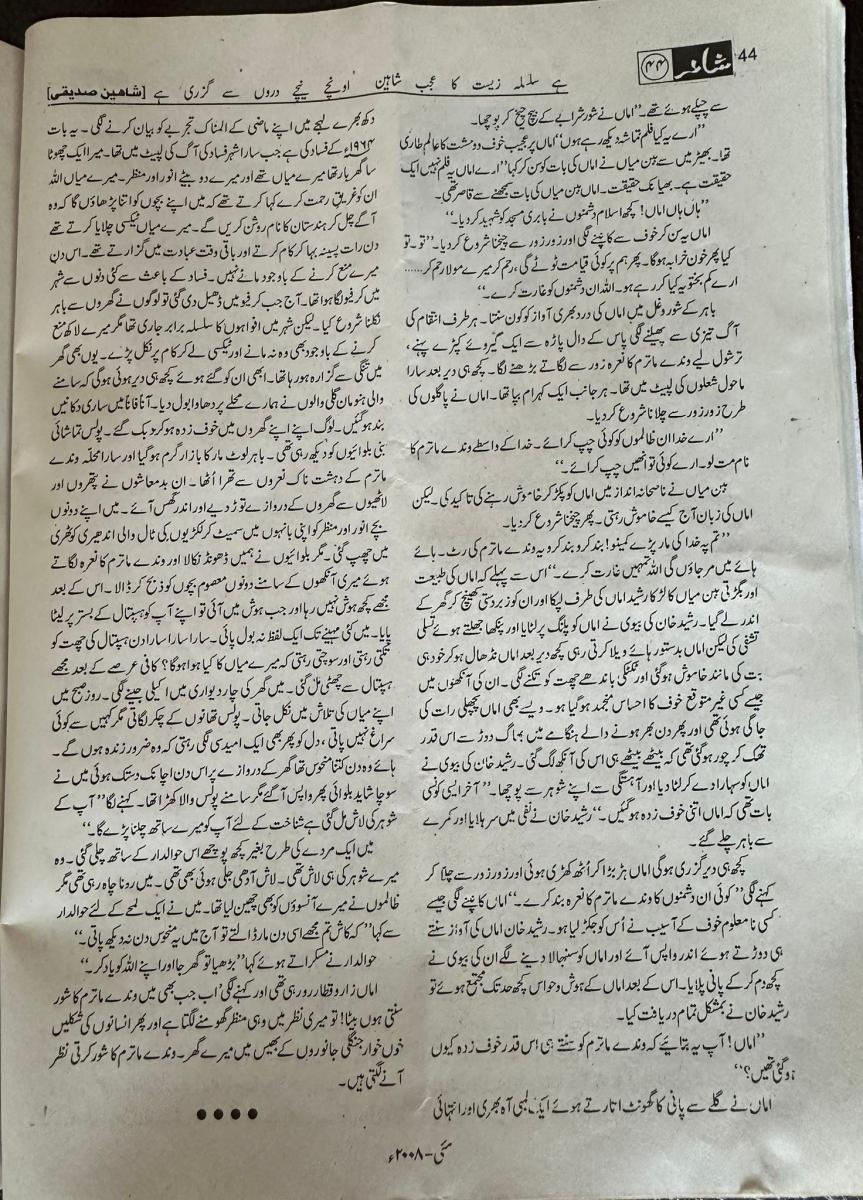 44
شاعر
۴۴
ہے سلسلہ زیست کا عجب شاہین اونچے نیچے دروں سے گزری ہے [شاھین صدیقی]
سے چپکے ہوئے تھے۔" اماں نے شور شرابے کے بیچ چیخ کر پوچھا۔
"ارے یہ کیا فلم تماشہ دیکھ رہے ہوں" اماں پر عجیب خوف و دہشت کا عالم طاری
تھا۔ بھیڑ میں سے ببن میاں نے اماں کی بات کو سن کر کہا "ارے اماں یہ فلم نہیں ایک
حقیقت ہے۔ بھیانک حقیقت۔ اماں ببن میاں کی بات سمجھنے سے قاصر تھی۔
"ہاں ہاں اماں! کچھ اسلام دشمنوں نے بابری مسجد کو شہید کر دیا۔"
اماں یہ سن کر خوف سے کانپنے لگی اور زور زور سے چیخنا شروع کر دیا۔ "تو۔ تو
کیا پھر خون خرابہ ہوگا۔ پھر ہم پر کوئی قیامت ٹوٹے گی، رحم کر میرے مولا رحم کر......
ارے کم بختو یہ کیا کر رہے ہو۔ اللہ ان دشمنوں کو غارت کرے۔"
باہر کے شور و غل میں اماں کی درد بھری آواز کو کون سنتا۔ ہر طرف انتقام کی
آگ تیزی سے پھیلنے لگی پاس کے دال پاڑہ سے ایک گیروئے کپڑے پہنے،
ترشول لیے وندے ماترم کا نعرہ زور سے لگاتے بڑھنے لگا۔ کچھ ہی دیر بعد سارا
ماحول شعلوں کی لپیٹ میں تھا۔ ہر جانب ایک کہرام بپا تھا۔ اماں نے پاگلوں کی
طرح زور زور سے چلانا شروع کر دیا۔
"ارے خدا ان ظالموں کو کوئی چپ کرائے۔ خدا کے واسطے وندے ماترم کا
نام مت لو۔ ارے کوئی تو انھیں چپ کرائے۔"
ببن میاں نے ناصحانہ انداز میں اماں کو پکڑ کر خاموش رہنے کی تاکید کی۔ لیکن
اماں کی زبان آج کیسے خاموش رہتی۔ پھر چیخنا شروع کر دیا۔
"تم پہ خدا کی مار پڑے کمینو! بند کرو بند کرو یہ وندے ماترم کی رٹ۔ ہائے
ہائے میں مر جاؤں گی اللہ تمہیں غارت کرے۔" اس سے پہلے کہ اماں کی طبیعت
اور بگڑتی ببن میاں کا لڑکا رشید اماں کی طرف لپکا اور ان کو زبردستی کھینچ کر گھر کے
اندر لے گیا۔ رشید خان کی بیوی نے اماں کو پلنگ پر لٹایا اور پنکھا جھلتے ہوئے تسلی
تشفی کی لیکن اماں بدستور ہائے ویلا کرتی رہی کچھ دیر بعد اماں نڈھال ہو کر خود ہی
بت کی مانند خاموش ہوگئی اور ٹکٹکی باندھے چھت کو تکنے لگی۔ ان کی آنکھوں میں
جیسے کسی غیر متوقع خوف کا احساس منجمد ہو گیا ہو۔ ویسے بھی اماں پچھلی رات کی
جاگی ہوئی تھی اور پھر دن بھر ہونے والے ہنگامے میں بھاگ دوڑ سے اس قدر
تھک کر چور ہوگئی تھی کہ بیٹھے بیٹھے ہی اس کی آنکھ لگ گئی۔ رشید خان کی بیوی نے
اماں کو سہارا دے کر لٹا دیا اور آہستگی سے اپنے شوہر سے پوچھا۔ "آخر ایسی کونسی
بات تھی کہ اماں اتنی خوف زدہ ہوگئیں۔" رشید خان نے نفی میں سر ہلایا اور کمرے
سے باہر چلے گئے۔
کچھ ہی دیر گزری ہوگی اماں ہڑبڑا کر اُٹھ کھڑی ہوئی اور زور زور سے چلّا کر
کہنے لگی "کوئی ان دشمنوں کا وندے ماترم کا نعرہ بند کرے۔" اماں کانپنے لگی جیسے
کسی نامعلوم خوف کے آسیب نے اُس کو جکڑ لیا ہو۔ رشید خان اماں کی آواز سنتے
ہی دوڑتے ہوئے اندر واپس آئے اور اماں کو سنبھالا دینے لگے ان کی بیوی نے
کچھ دم کر کے پانی پلایا۔ اس کے بعد اماں کے ہوش و حواس کچھ حد تک مجتمع ہوئے تو
رشید خان نے بمشکل تمام دریافت کیا۔
"اماں! آپ یہ بتائیے کہ وندے ماترم کو سنتے ہی اس قدر خوف زدہ کیوں
ہوگئی تھیں؟"
اماں نے گلے سے پانی کا گھونٹ اتارتے ہوئے ایک لمبی آہ بھری اور انتہائی
دکھ بھرے لہجے میں اپنے ماضی کے المناک تجربے کو بیان کرنے لگی۔ یہ بات
۱۹۶۴ء کے فساد کی ہے جب سارا شہر فساد کی آگ کی لپیٹ میں تھا۔ میرا ایک چھوٹا
سا گھر بار تھا میرے میاں تھے اور میرے دو بیٹے انور اور منظر۔ میرے میاں اللہ
ان کو غریقِ رحمت کرے کہا کرتے تھے کہ میں اپنے بچوں کو اتنا پڑھاؤں گا کہ وہ
آگے چل کر ہندستان کا نام روشن کریں گے۔ میرے میاں ٹیکسی چلایا کرتے تھے
دن رات پسینہ بہا کر کام کرتے اور باقی وقت عبادت میں گزارتے تھے۔ اس دن
میرے منع کرنے کے باوجود مانے نہیں۔ فساد کے باعث سے کئی دنوں سے شہر
میں کرفیو لگا ہوا تھا۔ آج جب کرفیو میں ڈھیل دی گئی تو لوگوں نے گھروں سے باہر
نکلنا شروع کیا۔ لیکن شہر میں افواہوں کا سلسلہ برابر جاری تھا مگر میرے لاکھ منع
کرنے کے باوجود بھی وہ نہ مانے اور ٹیکسی لے کر کام پر نکل پڑے۔ یوں بھی گھر
میں تنگی سے گزارہ ہو رہا تھا۔ ابھی ان کو گئے ہوئے کچھ ہی دیر ہوئی ہوگی کہ سامنے
والی ہنومان گلی والوں نے ہمارے محلے پر دھاوا بول دیا۔ آناً فاناً میں ساری دکانیں
بند ہوگئیں۔ لوگ اپنے اپنے گھروں میں خوف زدہ ہو کر دبک گئے۔ پولس تماشائی
بنی بلوائیوں کو دیکھ رہی تھی۔ باہر لوٹ مار کا بازار گرم ہو گیا اور سارا محلہ وندے
ماترم کے دہشت ناک نعروں سے تھرا اُٹھا۔ ان بدمعاشوں نے پتھروں اور
لاٹھیوں سے گھروں کے دروازے توڑ دیے اور اندر گھس آئے۔ میں اپنے دونوں
بچے انور اور منظر کو اپنی بانہوں میں سمیٹ کر لکڑیوں کی ٹال والی اندھیری کوٹھری
میں چھپ گئی۔ مگر بلوائیوں نے ہمیں ڈھونڈ نکالا اور وندے ماترم کا نعرہ لگاتے
ہوئے میری آنکھوں کے سامنے دونوں معصوم بچوں کو ذبح کر ڈالا۔ اس کے بعد
مجھے کچھ ہوش نہیں رہا اور جب ہوش میں آئی تو اپنے آپ کو ہسپتال کے بستر پر لیٹا
پایا۔ میں کئی مہینے تک ایک لفظ نہ بول پائی۔ سارا سارا دن ہسپتال کی چھت کو
تکتی رہتی اور سوچتی رہتی کہ میرے میاں کا کیا ہوا ہوگا؟ کافی عرصے کے بعد مجھے
ہسپتال سے چھٹی مل گئی۔ میں گھر کی چار دیواری میں اکیلی جینے لگی۔ روز صبح میں
اپنے میاں کی تلاش میں نکل جاتی۔ پولس تھانوں کے چکر لگاتی مگر کہیں سے کوئی
سراغ نہیں پاتی، دل کو پھر بھی ایک امید سی لگی رہتی کہ وہ ضرور زندہ ہوں گے۔
ہائے وہ دن کتنا منحوس تھا گھر کے دروازے پر اس دن اچانک دستک ہوئی میں نے
سوچا شاید بلوائی پھر واپس آ گئے مگر سامنے پولس والا کھڑا تھا۔ کہنے لگا "آپ کے
شوہر کی لاش مل گئی ہے شناخت کے لئے آپ کو میرے ساتھ چلنا پڑے گا۔"
میں ایک مردے کی طرح بغیر کچھ پوچھے اس حوالدار کے ساتھ چلی گئی۔ وہ
میرے شوہر کی ہی لاش تھی۔ لاش آدھی جلی ہوئی بھی تھی۔ میں رونا چاہ رہی تھی مگر
ظالموں نے میرے آنسوؤں کو بھی چھین لیا تھا۔ میں نے ایک لمحے کے لئے حوالدار
سے کہا "کہ کاش تم مجھے اسی دن مار ڈالتے تو آج میں یہ منحوس دن نہ دیکھ پاتی۔"
حوالدار نے مسکراتے ہوئے کہا "بڑھیا تو گھر جا اور اپنے اللہ کو یاد کر۔"
اماں زار و قطار رو رہی تھی اور کہنے لگی 'اب جب بھی میں وندے ماترم کا شور
سنتی ہوں بیٹا! تو میری نظر میں وہی منظر گھومنے لگتا ہے اور پھر انسانوں کی شکلیں
خوں خوار جنگلی جانوروں کے بھیس میں میرے گھر۔ وندے ماترم کا شور کرتی نظر
آنے لگتی ہیں۔
●●●●
مئی - ۲۰۰۸ء